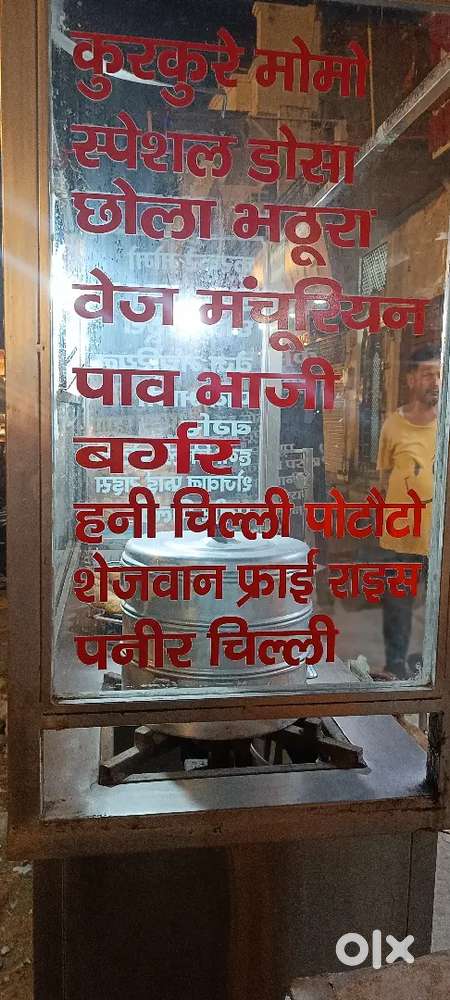 कुरकुरे मोमो
स्पेशल डोसा
छोला भठूरा
वेज मंचूरियन
पाव भाजी
बर्गर
हनी चिल्ली पोटौटो
शेजवान फ्राई राइस
पनीर चिल्ली
olx